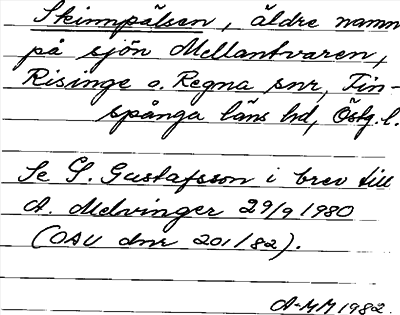 Skinnpälsen, äldre namn
på sjön Mellantvaren,
Risinge o. Regna snr, Fin-
spånga läns hd, Östg.l.
Se S. Gustafsson i brev till
A. Melvinger 29/9 1980
(OAU dnr 201/82).
A-MM 1982.